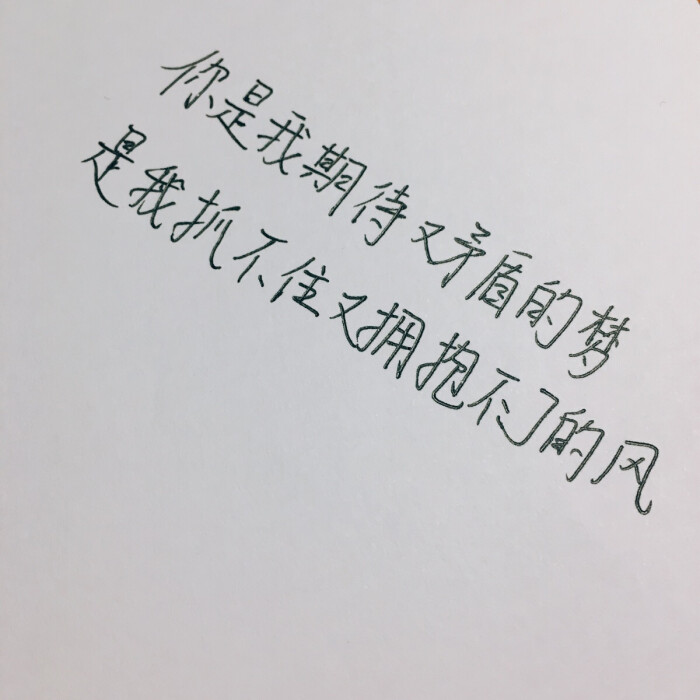 你是我期待又矛盾的梦
是我抓不住又拥抱不了的风